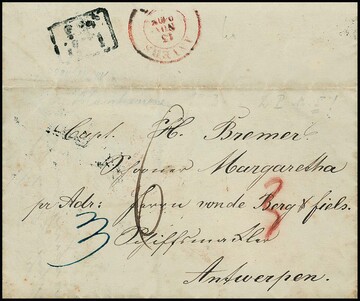 ANVERS
13
NOV
Capt. H. Bremer.
Schooner Margaretha
pr Adr: Herrn von de Berg & fils.
Schiffsmackler
Antwerpen.
6
3
3